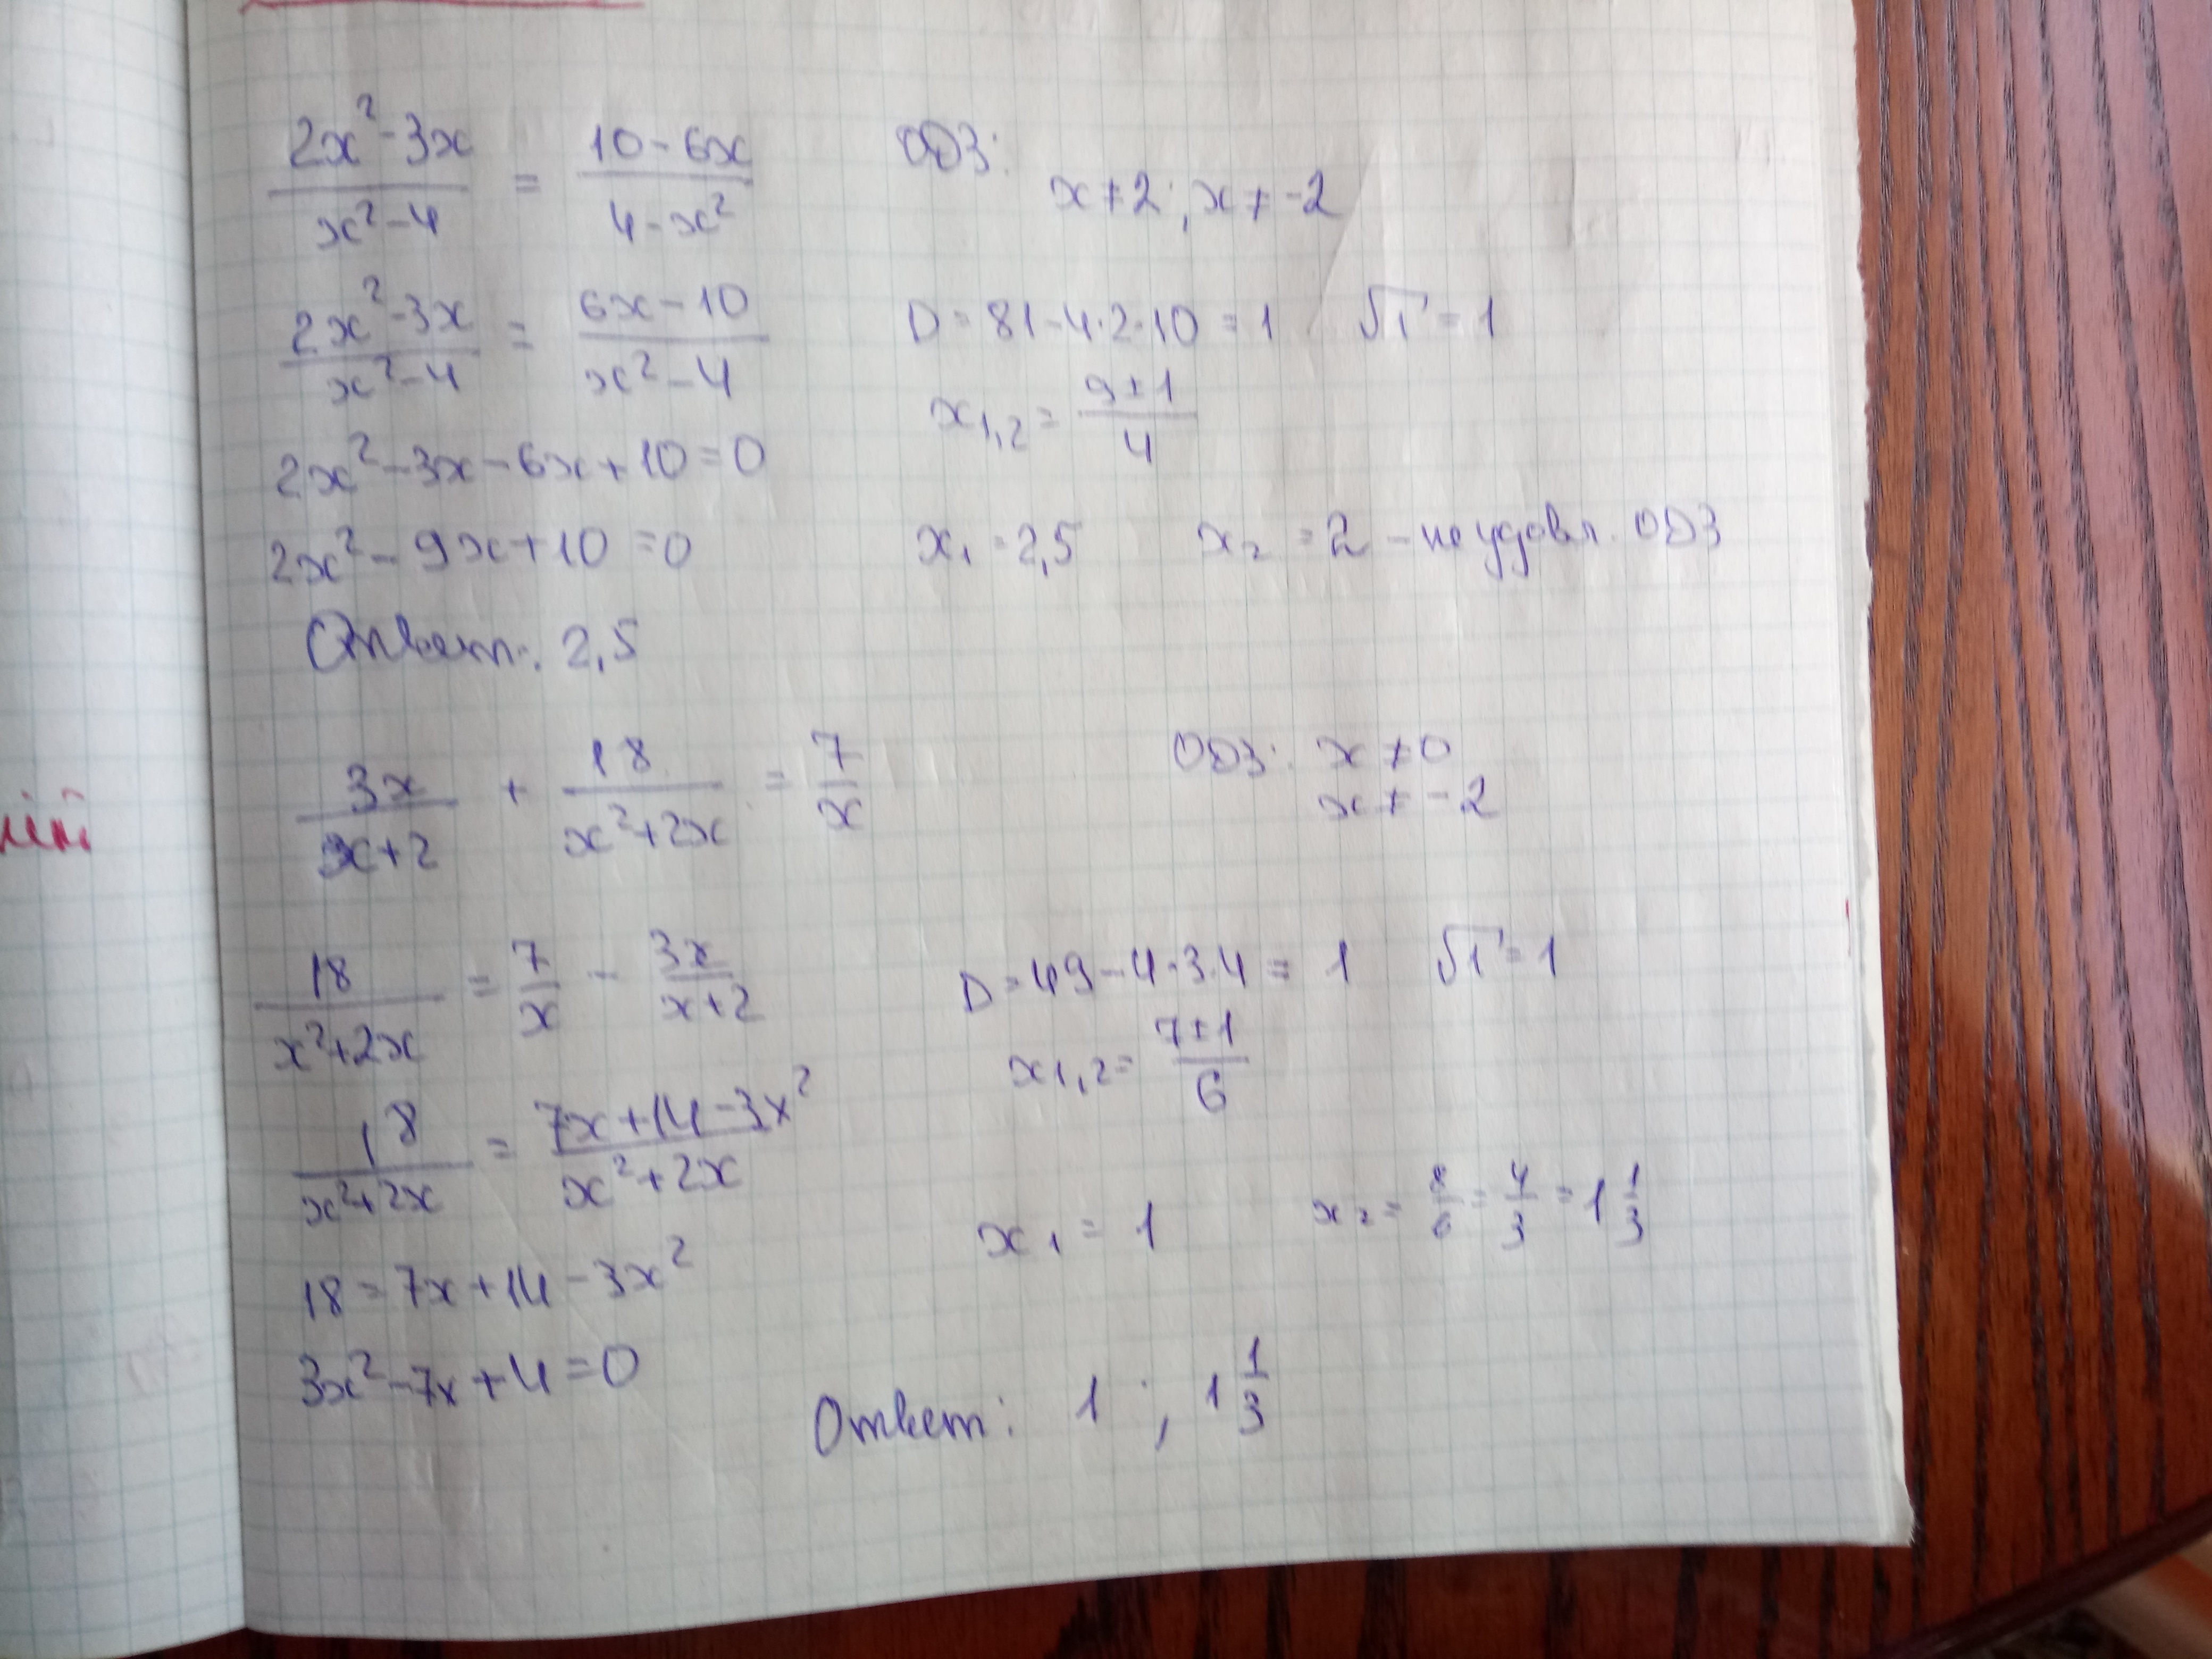 (2x²-3x)/(x²-4) = (10-6x)/(4-x²) ОДЗ: x≠2; x≠-2
(2x²-3x)/(x²-4) = (6x-10)/(x²-4) D=81-4·2·10=1 √1=1
x₁,₂=(9±1)/4
2x²-3x-6x+10=0
2x²-9x+10=0 x₁=2,5 x₂=2 - не удовл. ОДЗ
Ответ: 2,5
3x/(x+2) + 18/(x²+2x) = 7/x ОДЗ: x≠0
x≠-2
18/(x²+2x) = 7/x - 3x/(x+2) D=49-4·3·4=1 √1=1
x₁,₂=(7±1)/6
18/(x²+2x) = (7x+14-3x²)/(x²+2x)
x₁=1 x₂=8/6=4/3=1 1/3
18=7x+14-3x²
3x²-7x+4=0
Ответ: 1; 1 1/3